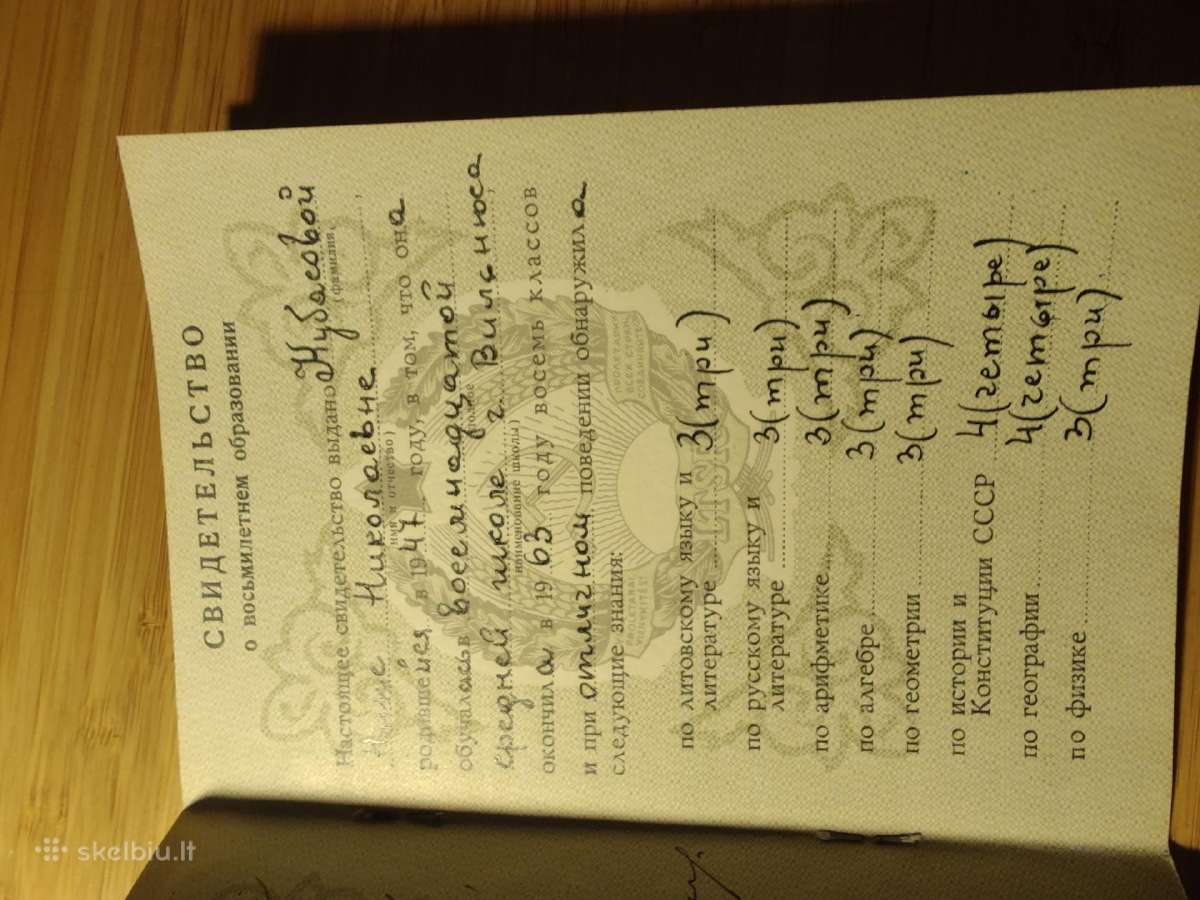 СВИДЕТЕЛЬСТВО
о восьмилетнем образовании
Настоящее свидетельство выдано Жубасовой
(фамилия,
Николаевне,
имя и отчество)
родившейся в 1947 году, в том, что она
обучалась в восемнадцатой
(полное
средней школе г. Вильнюса,
наименование школы)
окончила в 1963 году восемь классов
и при отличном поведении обнаружила
следующие знания:
по литовскому языку и
литературе 3(три)
по русскому языку и
литературе 3(три)
по арифметике 3(три)
по алгебре 3(три)
по геометрии 3(три)
по истории и
Конституции СССР 4(четыре)
по географии 4(четыре)
по физике 3(три)
skelbiu.lt